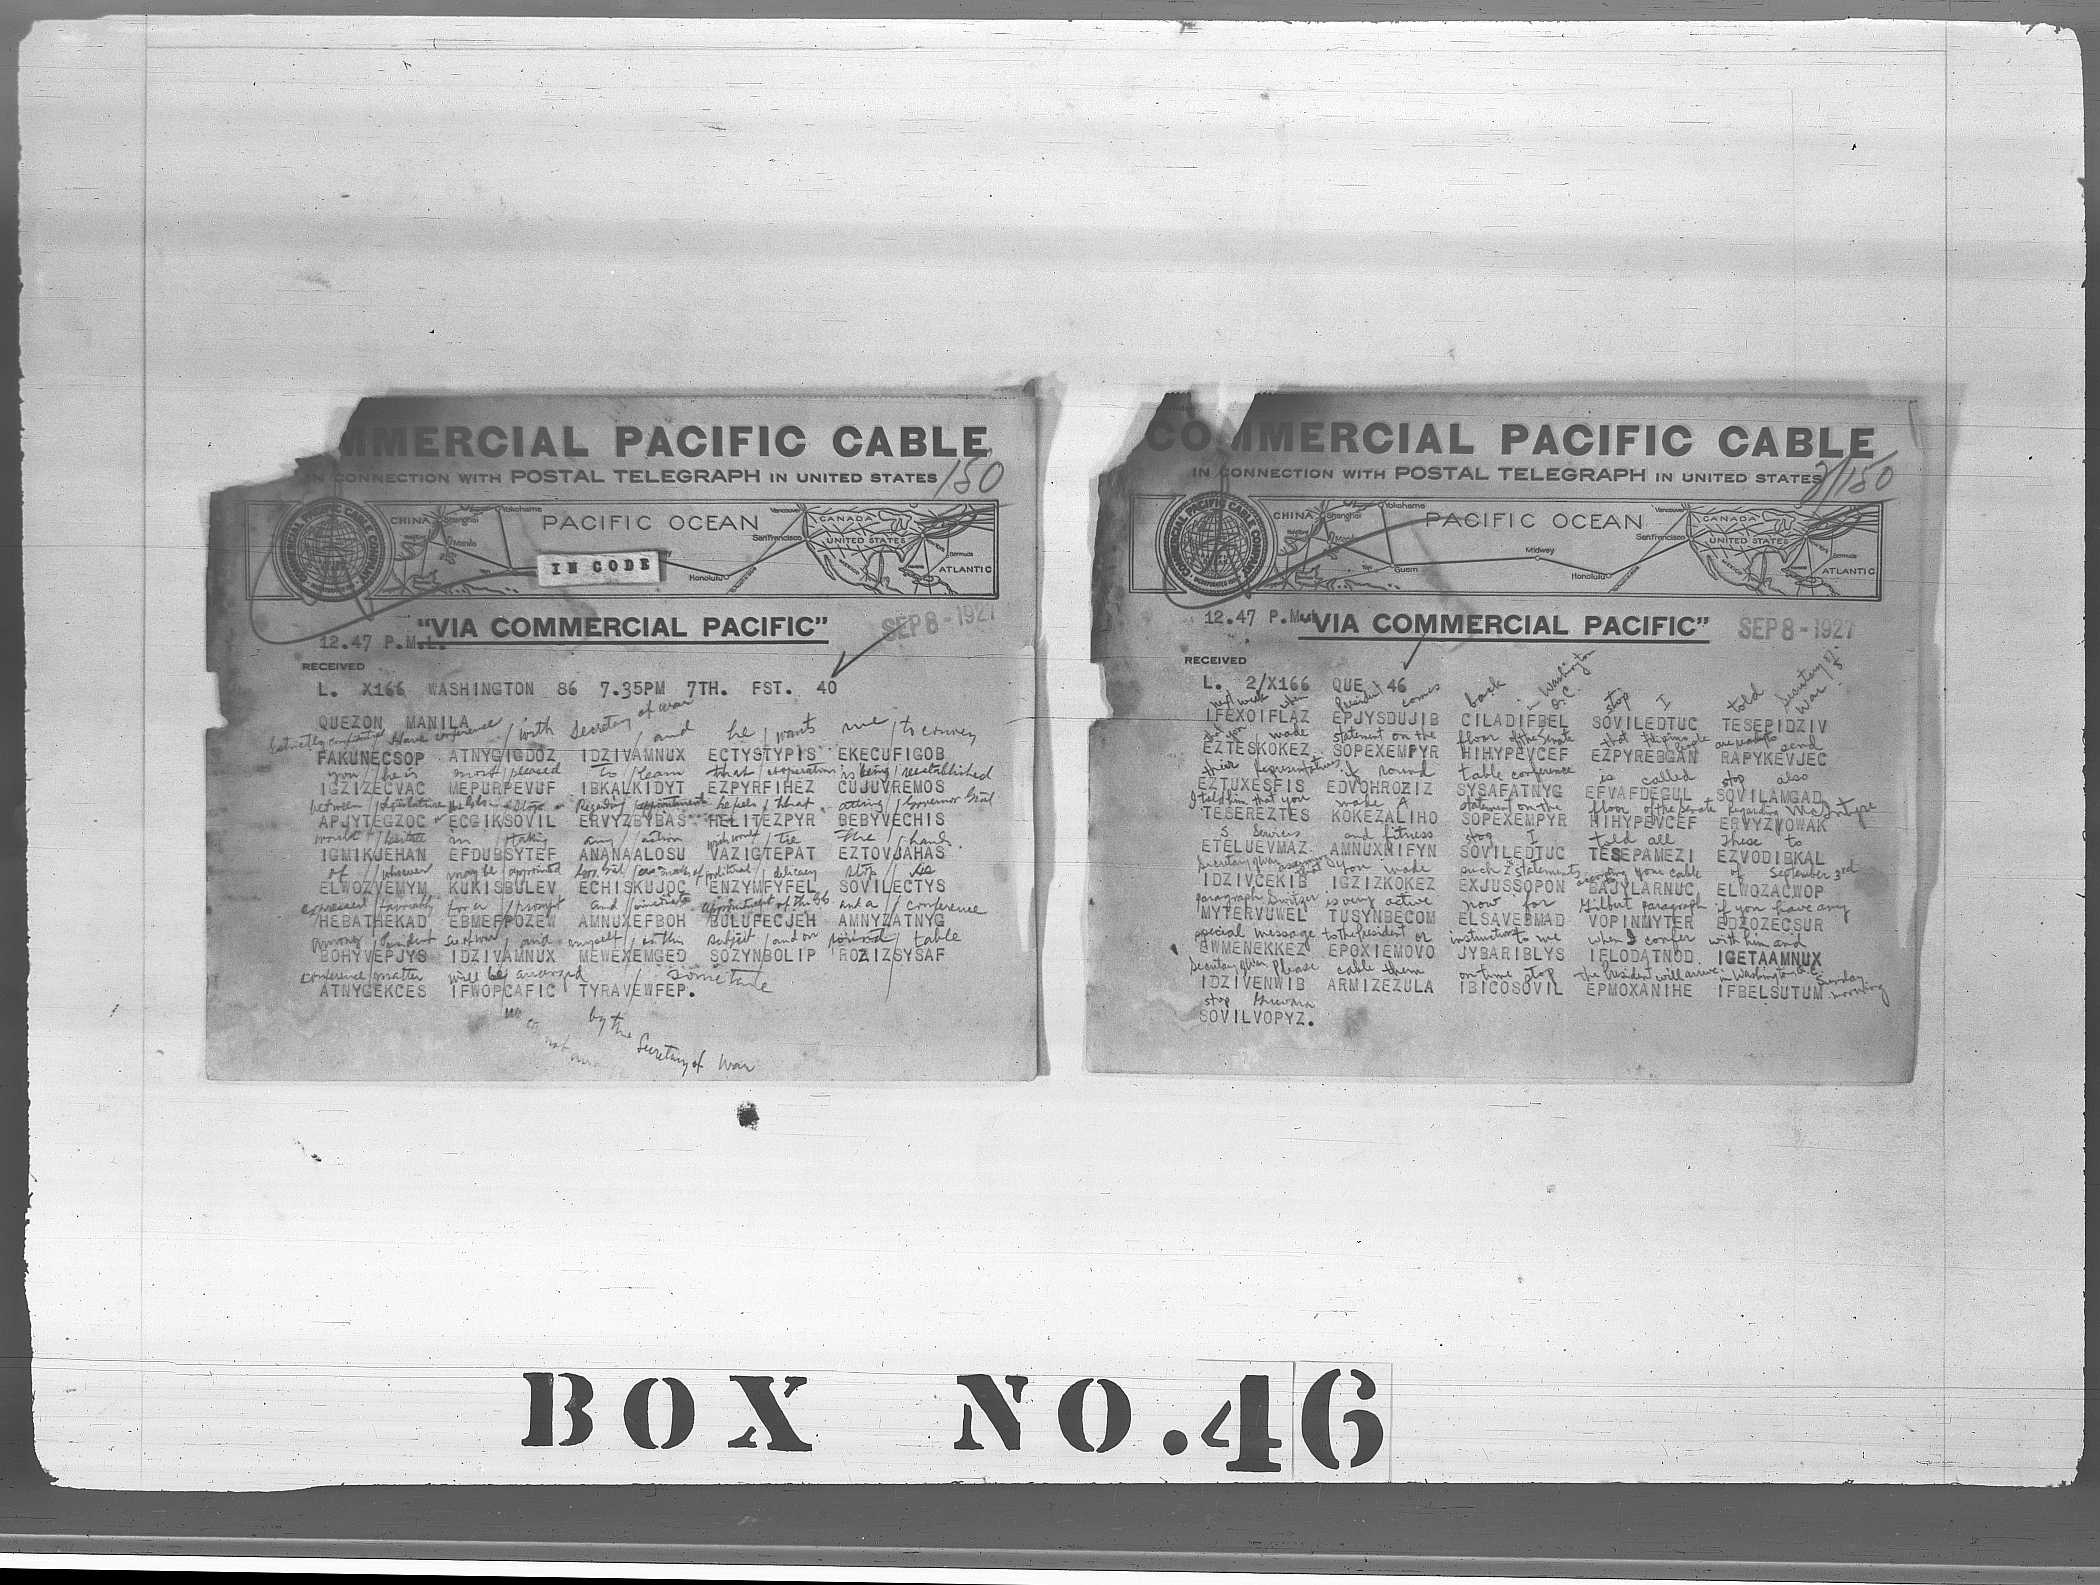 MMERCIAL PACIFIC CABLE
IN CONNECTION WITH POSTAL TELEGRAPH IN UNITED STATES
150
COMMERCIAL PACIFIC CABLE COMPANY
CHINA Shanghai Yokohama PACIFIC OCEAN Vancouver CANADA
Manila San Francisco UNITED STATES Bermuda
IN CODE
Honolulu MEXICO ATLANTIC
"VIA COMMERCIAL PACIFIC"
SEP 8 - 1927
12.47 P.M.L.
RECEIVED
L. X166 WASHINGTON 86 7.35PM 7TH. FST. 40
QUEZON MANILA
Strictly confidential Have conference / with Secretary of war / and he / wants me / to convey
FAKUNECSOP ATNYGIGDOZ IDZIVAMNUX ECTYSTYPIS EKECUFIGOB
you / he is most / pleased to / learn that / cooperation is being / reestablished
IGZIZECVAC MEPURPEVUF IBKALKIDYT EZPYRFIHEZ CUJUVREMOS
between / Legislature Regarding / appointments he feels / that acting / Governor Genl
APJYTEGZOC ECGIKSOVIL ERVYZBYBAS HELITEZPYR BEBYVECHIS
would / hesitate in / taking any / action wish would / tie the / hands
IGMIKJEHAN EFDUBSYTEF ANANAALOSU VAZIGTEPAT EZTOVJAHAS
of / whoever may be / appointed political / delicacy stop / he
ELWOZVEMYM KUKISBULEV ECHISKUJOC ENZYMFYFEL SOVILECTYS
expressed / favorably for a / prompt and / appointment of the GG and a / conference
HEBATHEKAD EBMEFPOZEW AMNUXEFBOH BULUFECJEH AMNYZATNYG
among / President Sec of War / and myself / on this subject / and on round / table
BOHYVEPJYS IDZIVAMNUX MEWEXEMGED SOZYNBOLIP ROZIZSYSAF
conference / matter will be / arranged / sometime
ATNYGEKCES IFWOPCAFIC TYRAVEWFEP.
by the Secretary of War
COMMERCIAL PACIFIC CABLE
IN CONNECTION WITH POSTAL TELEGRAPH IN UNITED STATES
2/150
COMMERCIAL PACIFIC CABLE COMPANY
CHINA Shanghai Yokohama PACIFIC OCEAN Vancouver CANADA
Manila San Francisco UNITED STATES Bermuda
Guam Midway Honolulu MEXICO ATLANTIC
12.47 P.M.L.
"VIA COMMERCIAL PACIFIC"
SEP 8 - 1927
RECEIVED
L. 2/X166 QUE 46
next week when President comes back in Washington D.C. stop I told Secretary of War
IFEXOIFLAZ EPJYSDUJIB CILADIFBEL SOVILEDTUC TESEPIDZIV
that you made statement on the floor of the Senate that Filipino people are ready to send
EZTESKOKEZ SOPEXEMPYR HIHYPEVCEF EZPYREBGAN RAPYKEVJEC
their Representatives if round table conference is called stop also
EZTUXESFIS EDVOHROZIZ SYSAFATNYG EFVAFDEGUL SOVILAMGAD
I told him that you make a statement on the floor of the Senate regarding McIntyre
TESEREZTES KOKEZALIHO SOPEXEMPYR HIHYPEVCEF ERVYZVOWAK
s Services and fitness stop I told all these to
ETELUEVMAZ AMNUXNIFYN SOVILEDTUC TESEPAMEZI EZVODIBKAL
Secretary of War that you made such 2 statements according your cable of September 3rd
IDZIVCEKIB IGZIZKOKEZ EXJUSSOPON BAJYLARNUC ELWOZACWOP
paragraph Switzer is very active now for Gilbert paragraph if you have any
MYTERVUWEL TUSYNBECOM ELSAVEBMAD VOPINMYTER EDZOZECSUR
special message to the President or instructions to me when I confer with him and
EWMENEKKEZ EPOXIEMOVO JYBARIBLYS IFLODATNOD IGETAAMNUX
Secretary of War please cable them on time stop The President will arrive in Washington D.C. Sunday morning
IDZIVENWIB ARMIZEZULA IBICOSOVIL EPMOXANIHE IFBELSUTUM
stop Guevara
SOVILVOPYZ.
BOX NO.46